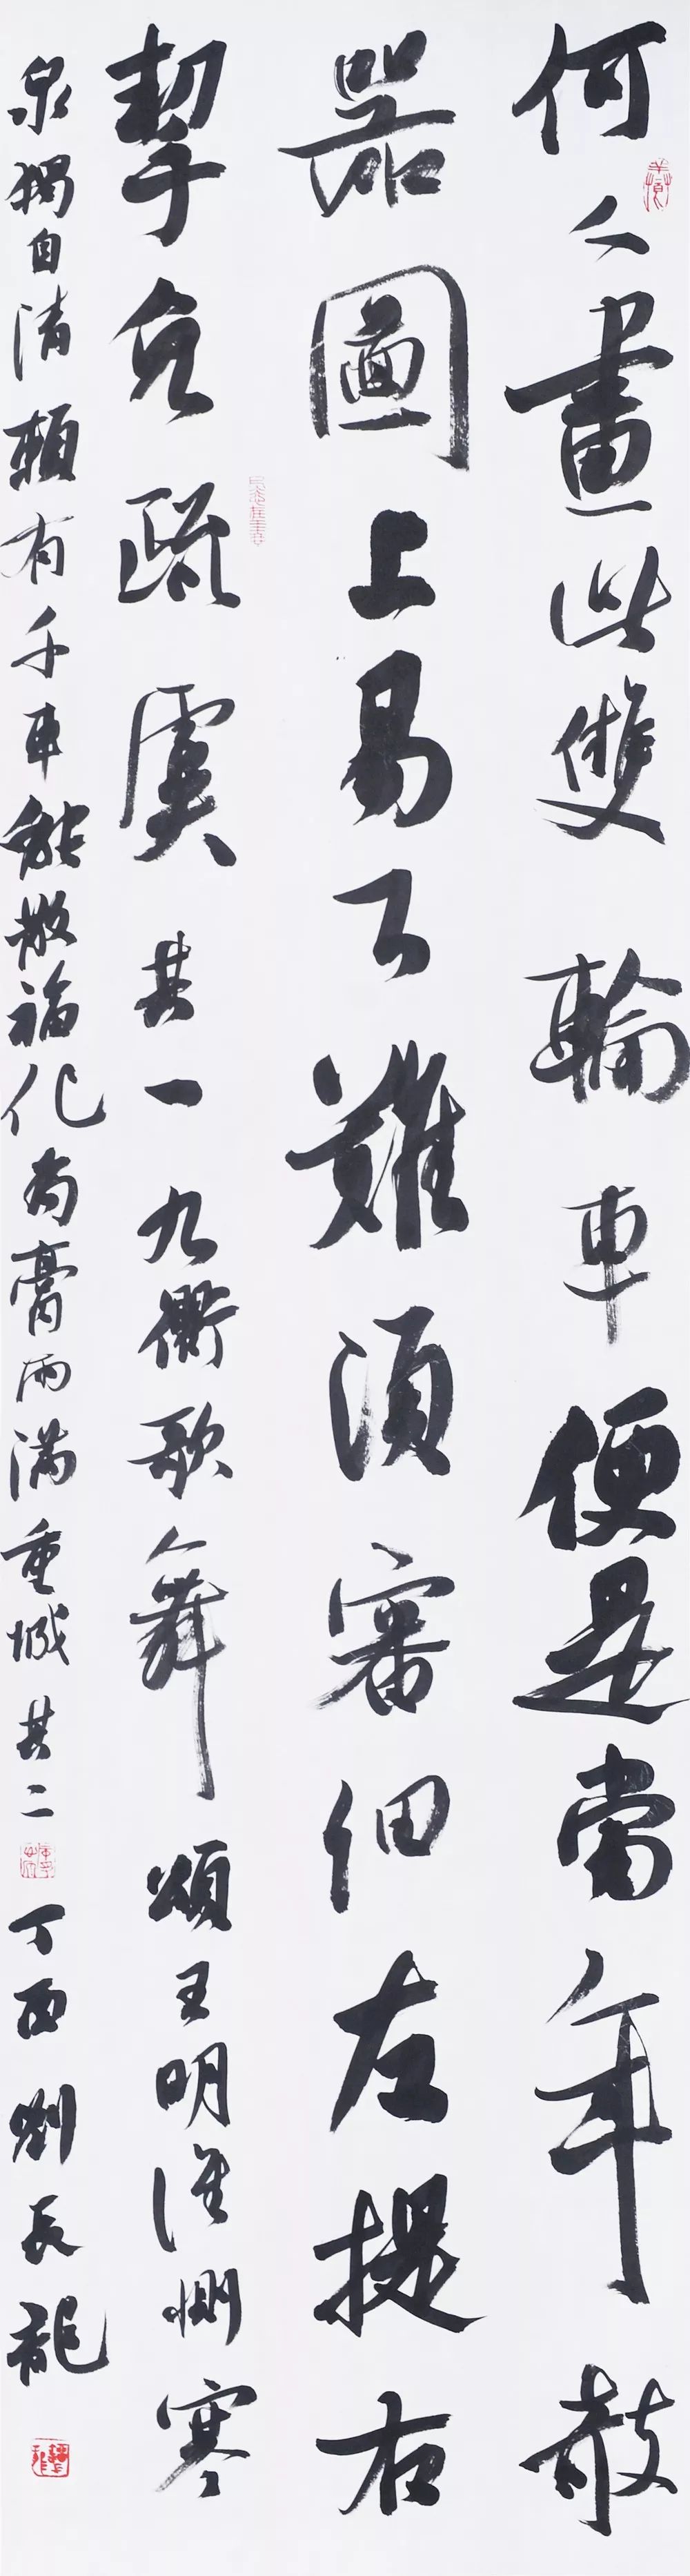 何人畫此雙輪車便是當年敧
器圖上易下難須審細左提右
挈免疏虞其一九衢歌舞頌王明誰惻寒
泉獨自清賴有千車能散福化為膏雨满重城其二丁酉劉長龍